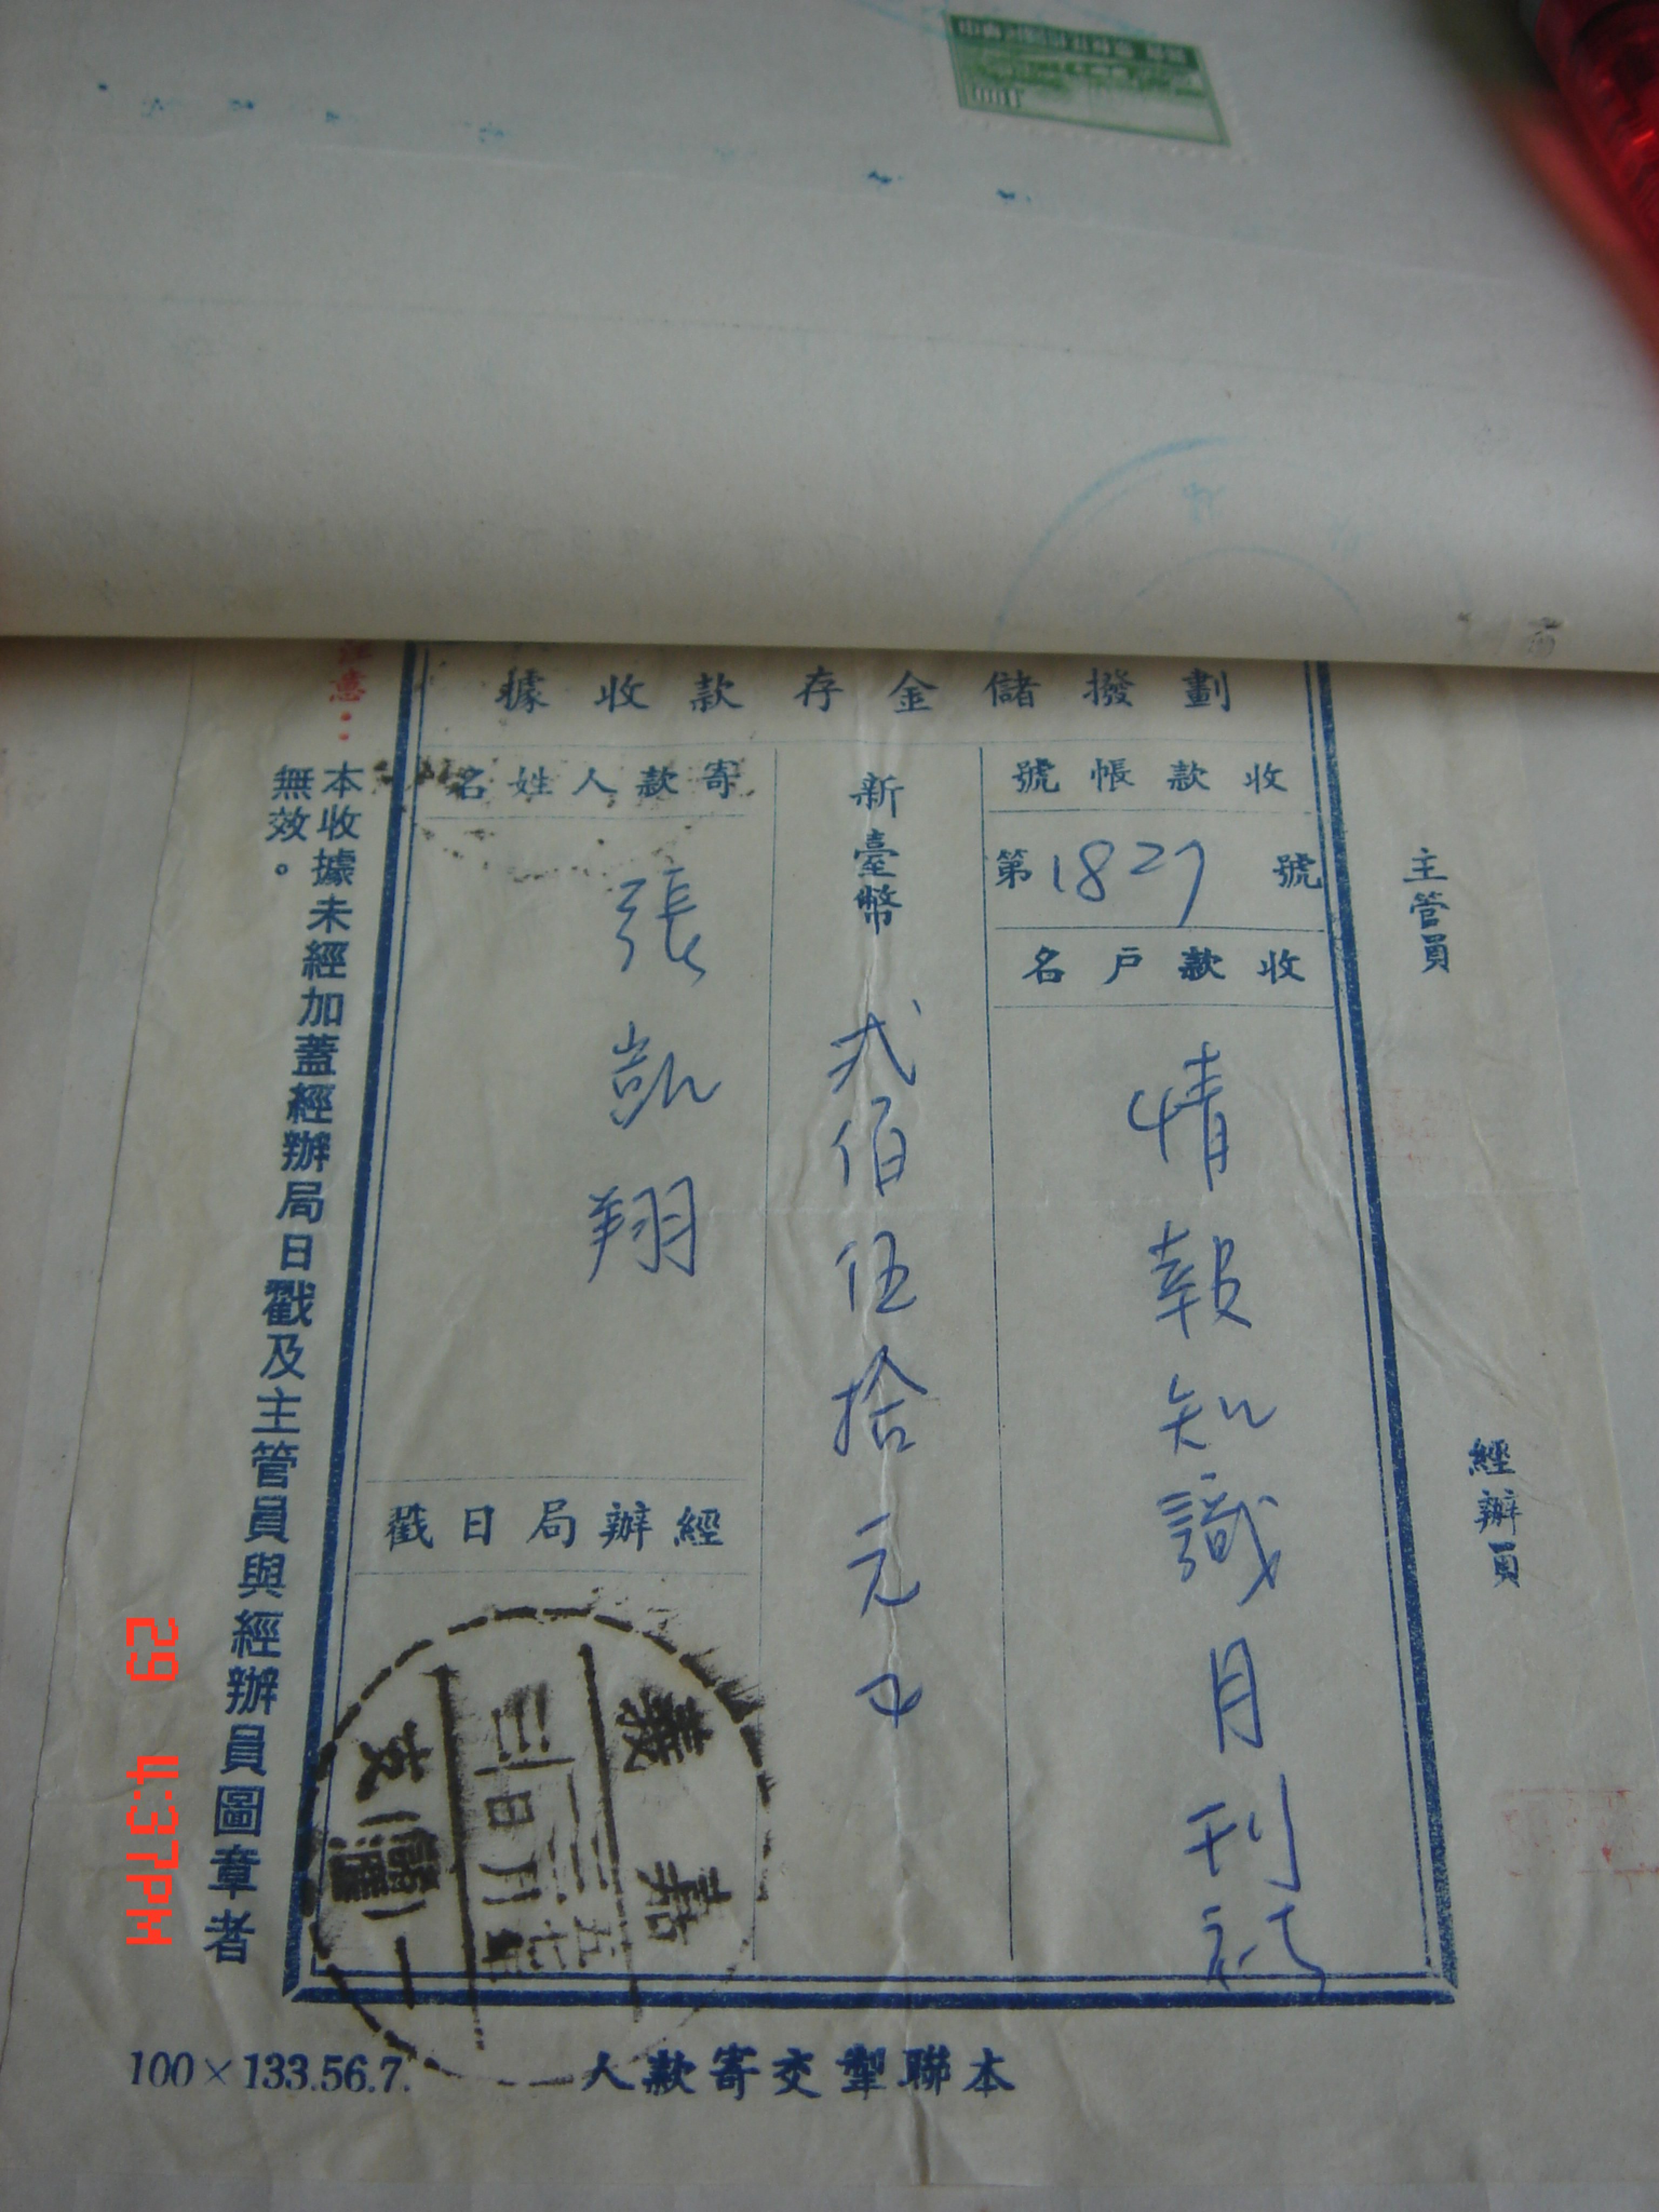 劃撥儲金存款收據
主管員
經辦員
收款帳號
第1827號
收款戶名
情報知識月刊社
新臺幣
貳佰伍拾元
寄款人姓名
張凱翔
經辦局日戳
嘉義
五七年
三月
日
注意：
本收據未經加蓋經辦局日戳及主管員與經辦員圖章者
無效。
本聯掣交寄款人
100×133.56.7.
29 4:37PM